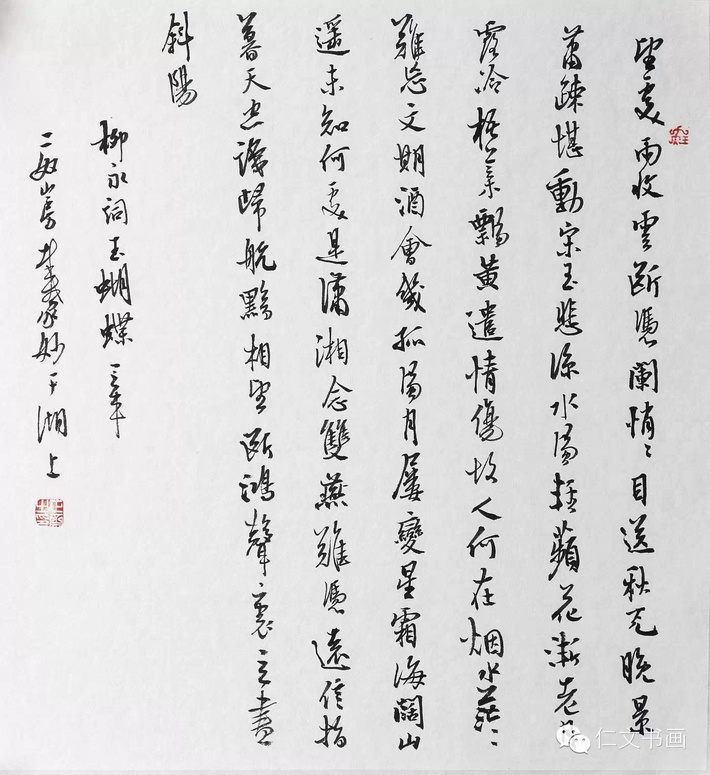 望處雨收雲斷憑闌悄〻目送秋光晚景
蕭疎堪動宋玉悲涼水風輕蘋花漸老月
露冷梧葉飄黃遣情傷故人何在烟水茫〻
難忘文期酒會幾孤風月屢變星霜海闊山
遥未知何處是瀟湘念雙燕難憑遠信指
暮天空識歸航黯相望斷鴻聲裏立盡
斜陽
柳永詞玉蝴蝶一章
山房妙于湖上
仁文书画